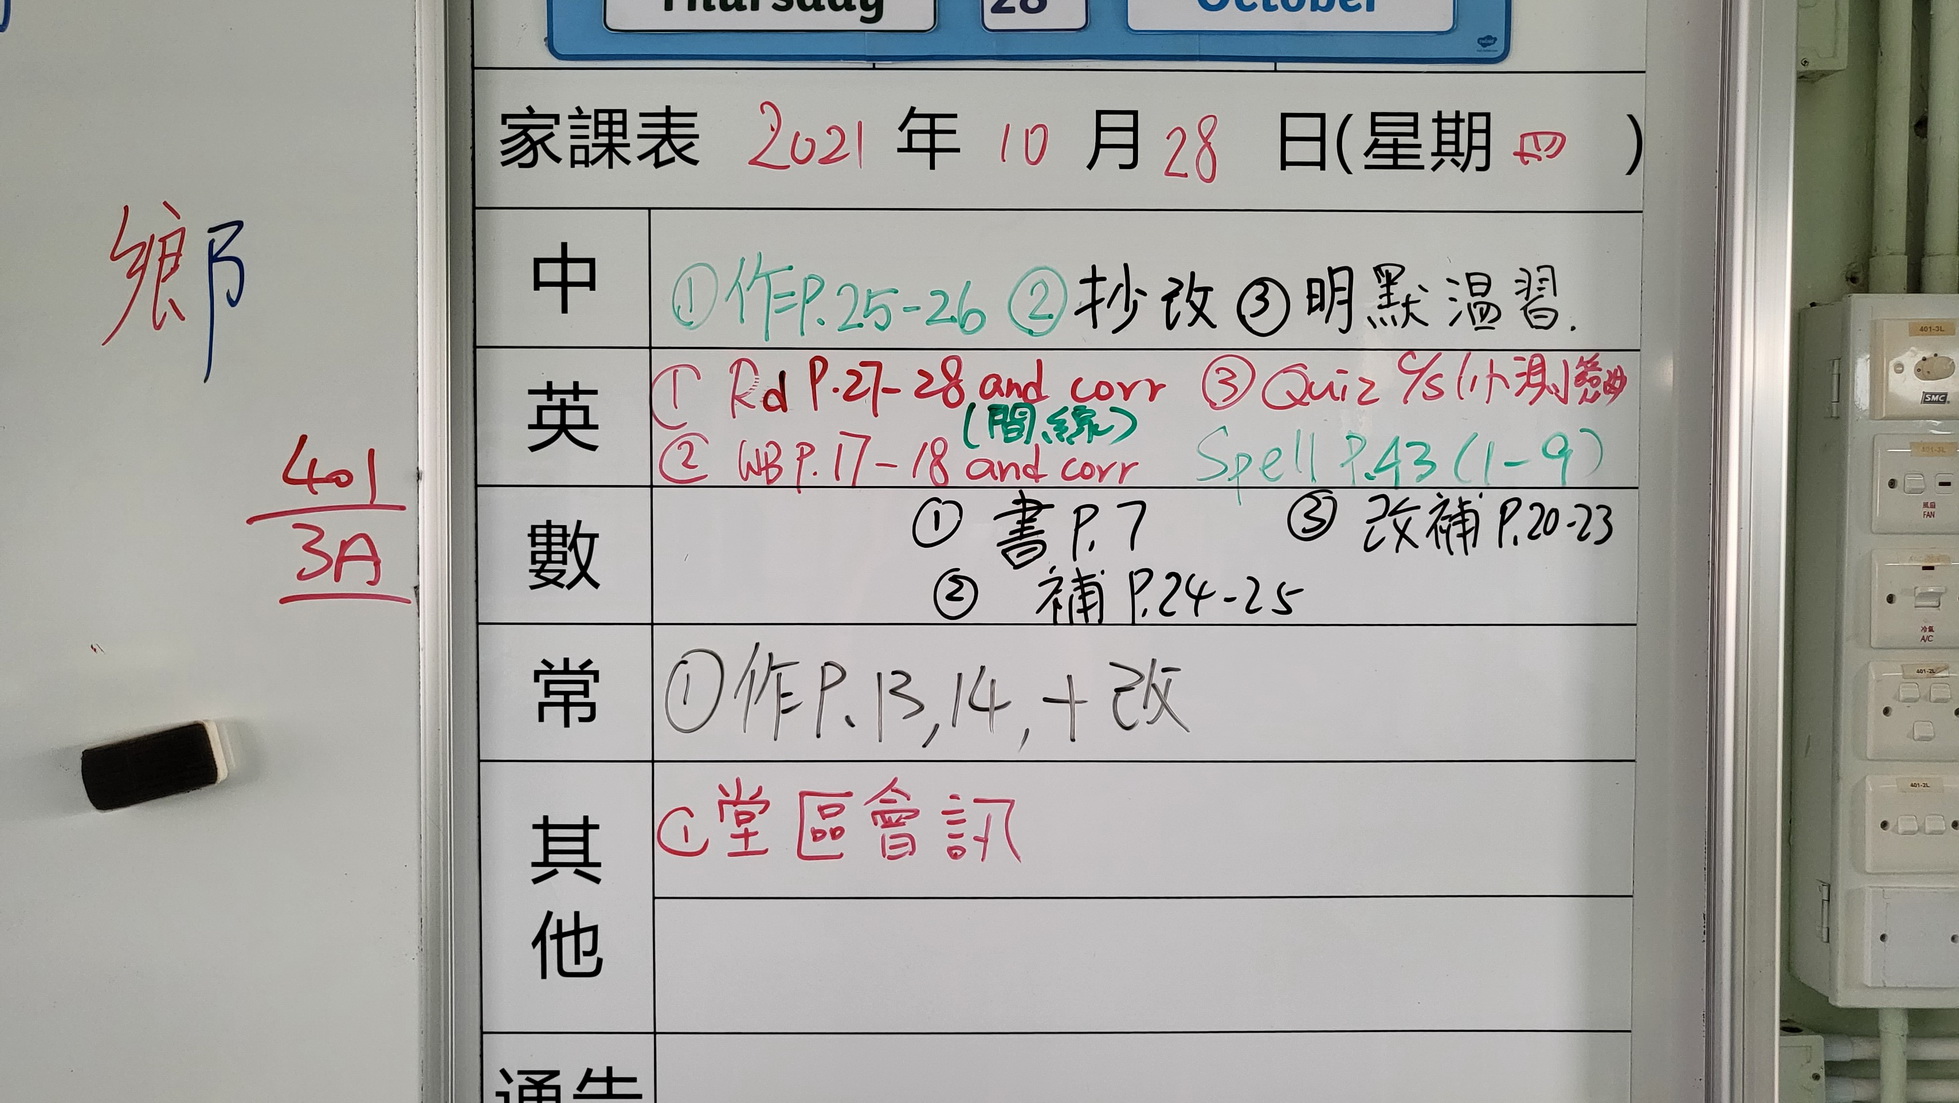 Thursday 28 October
家課表 2021 年 10 月 28 日(星期 四 )
鄉
401
3A
中
①作P.25-26 ②抄改 ③明默溫習.
英
① Rd P.27-28 and corr ③ Quiz c/s (小測
(間線)
② WB P.17-18 and corr Spell P.43 (1-9)
數
① 書 P.7 ③ 改補 P.20-23
② 補 P.24-25
常
①作P.13,14,+改
其他
①堂區會訊
通告
401-3L
SMC
風扇
FAN
冷氣
A/C
401-2L
401-2L